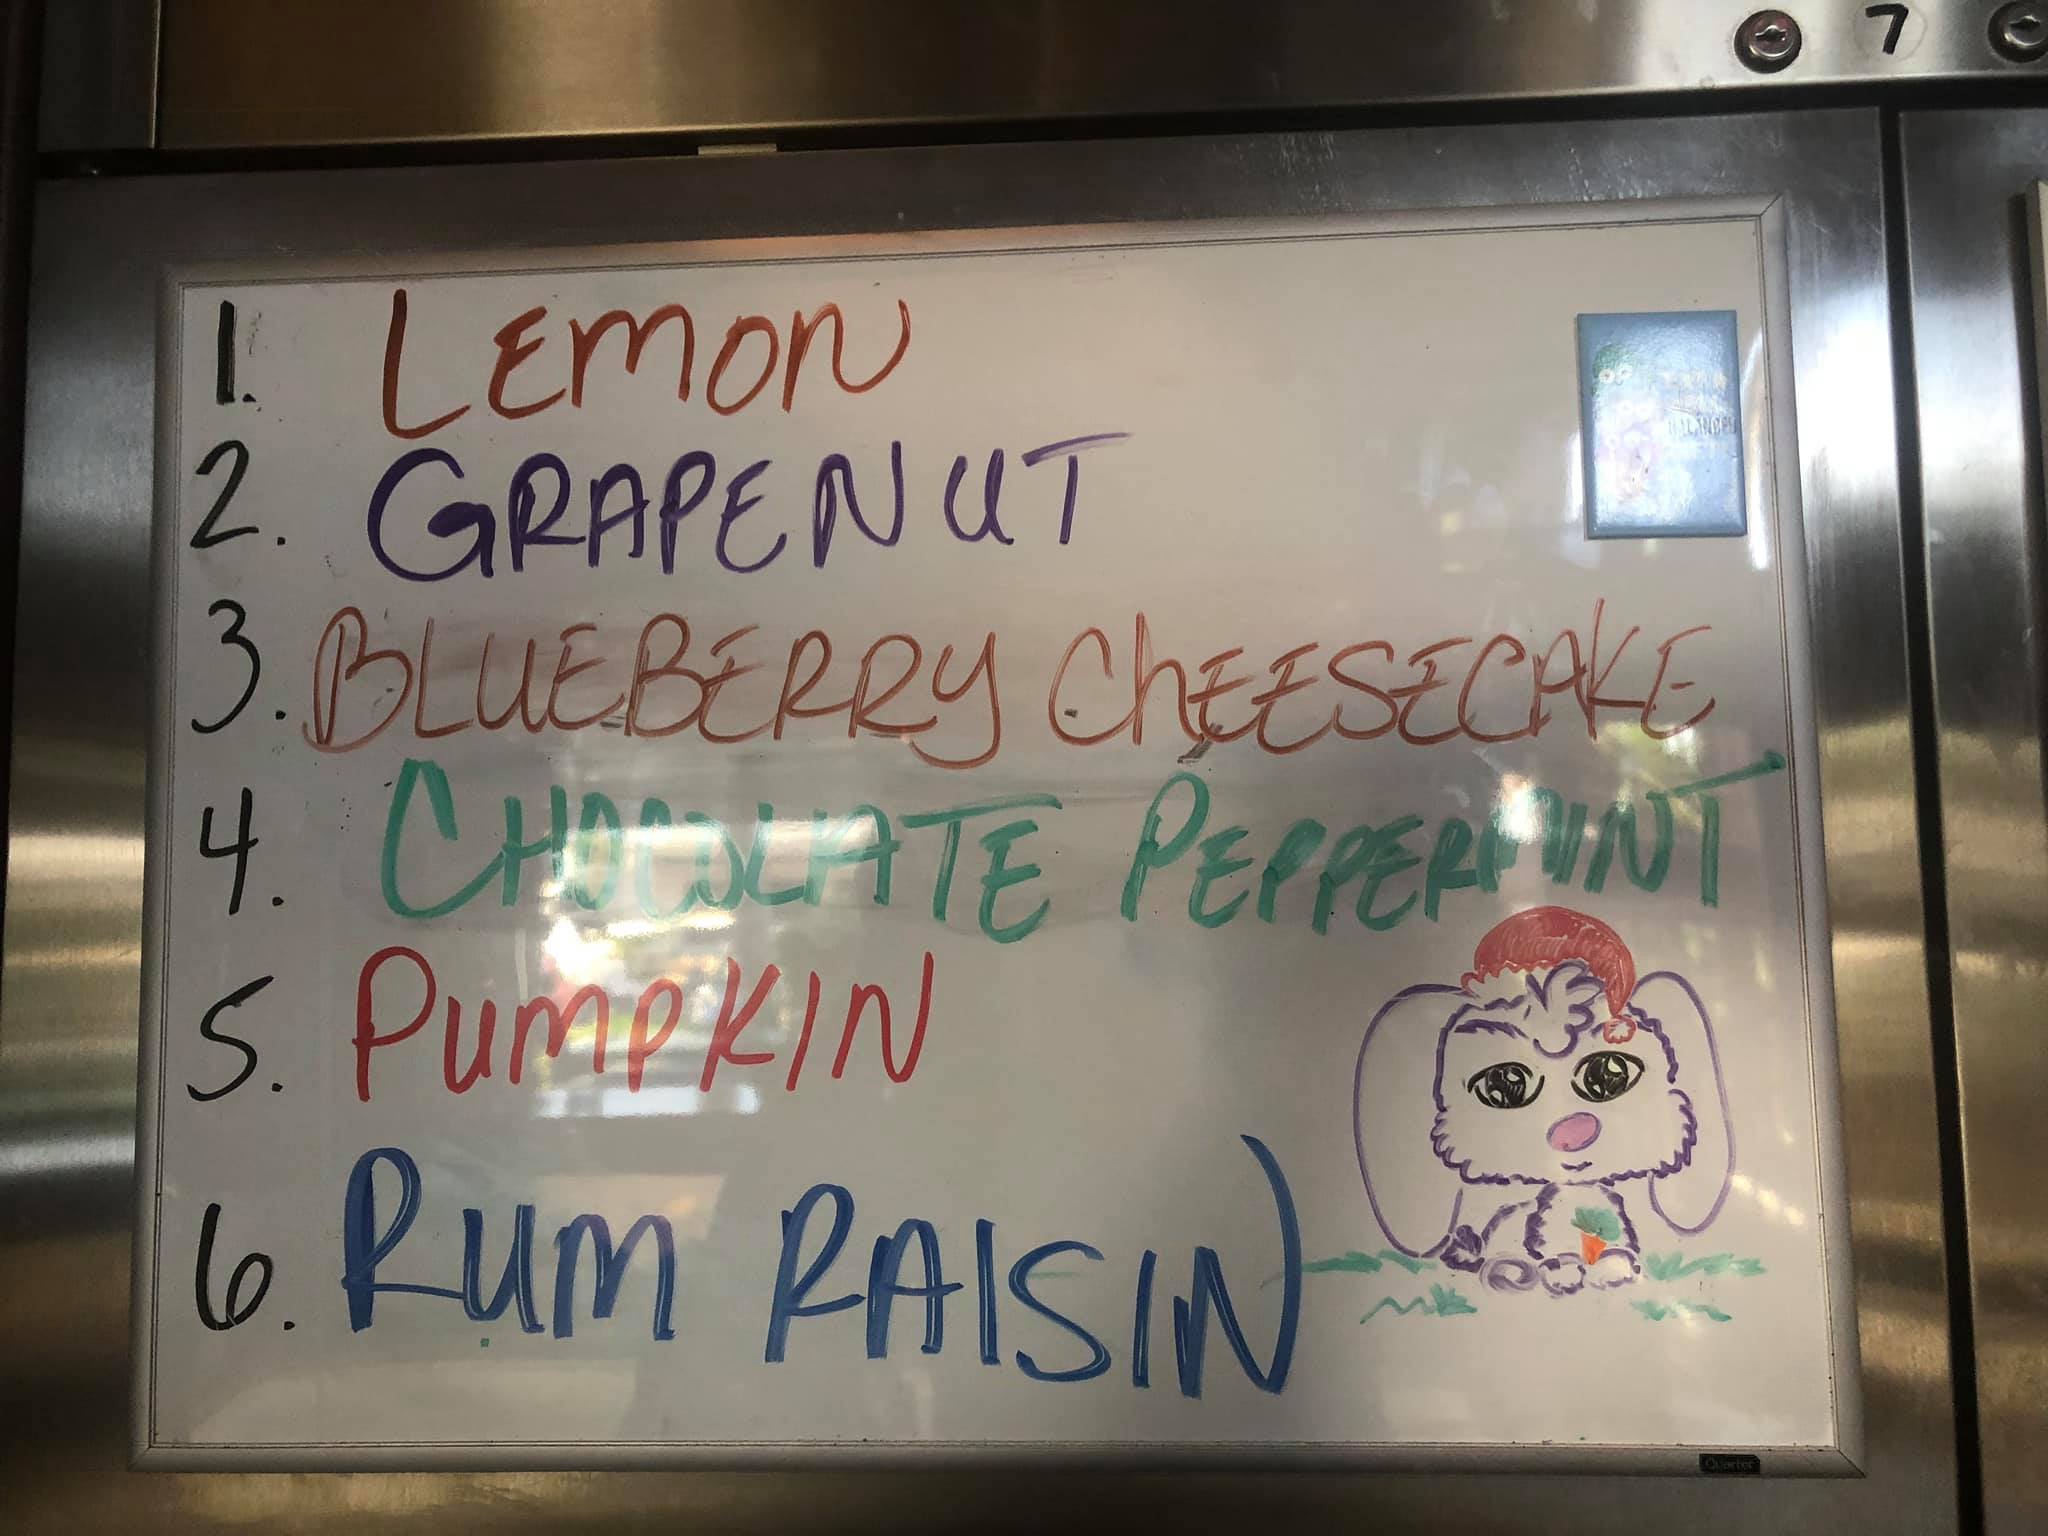 7
1. LEMON
2. GRAPENUT
3. BLUEBERRY CHEESECAKE
4. CHOCOLATE PEPPERMINT
5. PUMPKIN
6. RUM RAISIN
Quartet